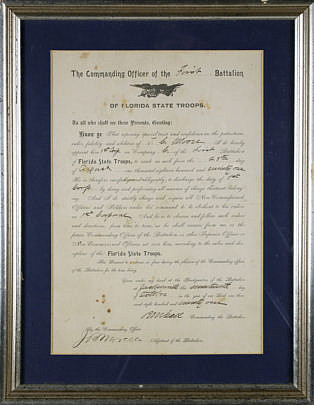 The Commanding Officer of the First Battalion
OF FLORIDA STATE TROOPS.
To all who shall see these Presents, Greeting:
Know ye That reposing special trust and confidence in the patriotism,
valor, fidelity and abilities of I do hereby
appoint him in Company C, First Battalion
of Florida State Troops, to rank as such from the 25th day
of August one thousand eight hundred and ninety one
He is therefore carefully and diligently to discharge the duty of 1st
Corp. by doing and performing all manner of things thereunto belong-
ing. And I do strictly charge and require all Non-Commissioned
Officers and Soldiers under his command to be obedient to his orders
as 1st Corporal And he is to observe and follow such orders
and directions, from time to time, as he shall receive from me, or the
future Commanding Officer of the Battalion or other Superior Officers
Non-Commissioned Officers set over him, according to the rules and dis-
cipline of the Florida State Troops.
This Warrant to continue in force during the pleasure of the Commanding Officer
of the Battalion for the time being.
Given under my hand at the Headquarters of the Battalion
at Jacksonville this seventeenth day
of in the year of our Lord one thou-
sand eight hundred and ninety one
Commanding the Battalion.
By the Commanding Officer
Adjutant of the Battalion.